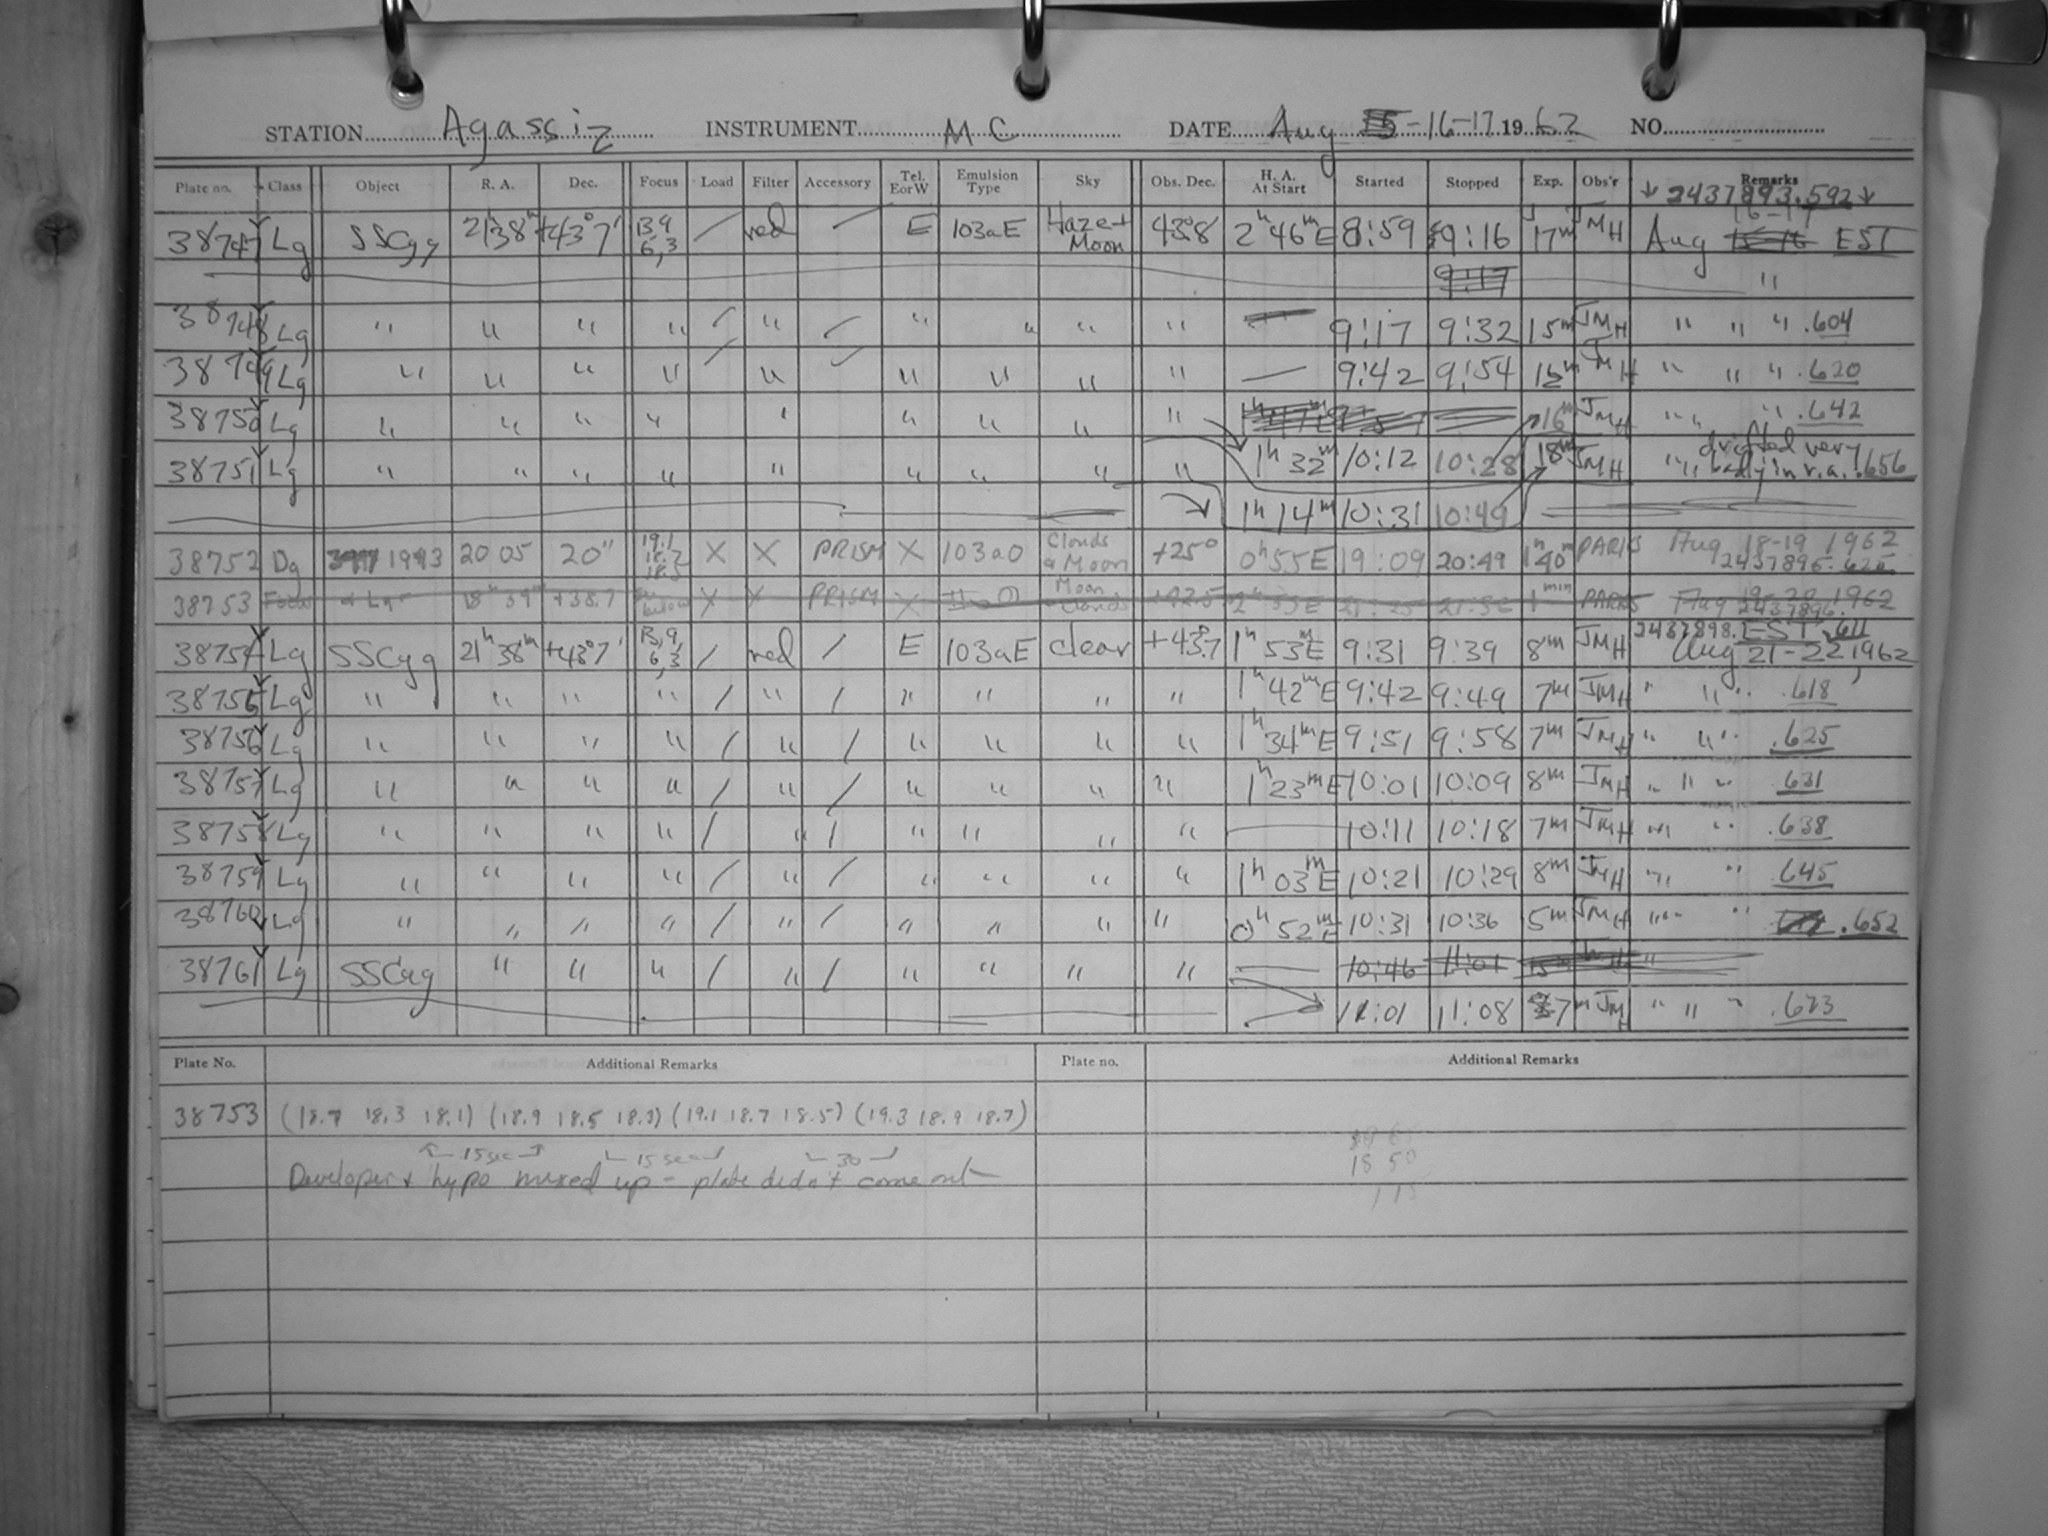 STATION Agassiz INSTRUMENT MC DATE Aug 16-17 1962 NO.
Plate no. Class Object R. A. Dec. Focus Load Filter Accessory Tel. E or W Emulsion Type Sky Obs. Dec. H. A. At Start Started Stopped Exp. Obs'r Remarks
↓ 2437893.592 ↓
38747 Lg SSCyg 21h38m +43°7' 13,9 6,3 / red / E 103aE Haze + Moon 43.8 2h 46m E 8:59 9:16 17m JMH Aug 16-17 EST
9:17 "
38748 Lg " " " " / " / " " " " — 9:17 9:32 15m JMH " " " .604
38749 Lg " " " " / " / " " " " — 9:42 9:54 12m JMH " " " .620
38750 Lg " " " " " " " " " 16m JMH " " " .642
38751 Lg " " " " " " " " " 1h 32m 10:12 10:28 18m JMH " " drifted very badly in r.a. .656
1h 14m 10:31 10:49
38752 Dg 1993 20 05 20" 19.1 18.7 18.5 X X PRISM X 103aO Clouds & Moon +25° 0h55E 19:09 20:49 1h40m PARKS Aug 18-19 1962 2437895.625
38753 Focus 18h 39m +38.7 X X PRISM X Moon Clouds 1min PARKS Aug 19-20 1962 2437896.
38754 Lg SSCyg 21h 38m +43°7' 13,9 6,3 / red / E 103aE clear +43.7 1h 53m E 9:31 9:39 8m JMH 2437898. EST .611 Aug 21-22, 1962
38755 Lg " " " " / " / " " " " 1h 42m E 9:42 9:49 7m JMH " " " .618
38756 Lg " " " " / " / " " " " 1h 34m E 9:51 9:58 7m JMH " " " .625
38757 Lg " " " " / " / " " " " 1h 23m E 10:01 10:09 8m JMH " " " .631
38758 Lg " " " " / " / " " " " — 10:11 10:18 7m JMH " " " .638
38759 Lg " " " " / " / " " " " 1h 03m E 10:21 10:29 8m JMH " " " .645
38760 Lg " " " " / " / " " " " 0h 52m E 10:31 10:36 5m JMH " " " .652
38761 Lg SSCyg " " " / " / " " " " — 10:46 11:01 15m "
11:01 11:08 7m JMH " " " .673
Plate No. Additional Remarks Plate no. Additional Remarks
38753 (18.7 18.3 18.1) (18.9 18.5 18.3) (19.1 18.7 18.5) (19.3 18.9 18.7)
15 sec 15 sec 30
Developer + hypo mixed up - plate didn't come out
18 50